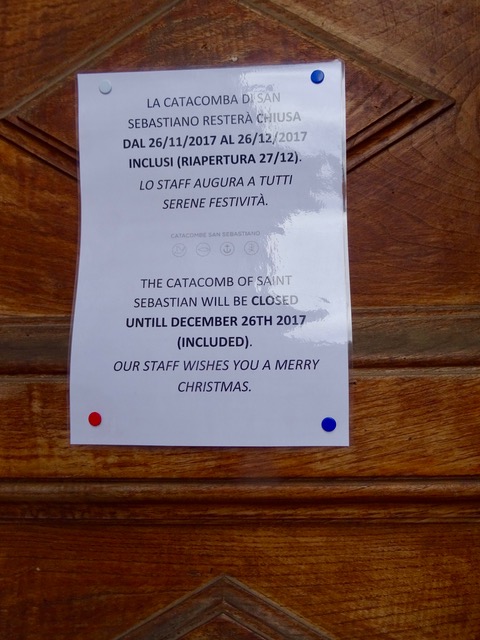 LA CATACOMBA DI SAN
SEBASTIANO RESTERÀ CHIUSA
DAL 26/11/2017 AL 26/12/2017
INCLUSI (RIAPERTURA 27/12).
LO STAFF AUGURA A TUTTI
SERENE FESTIVITÀ.
CATACOMBE SAN SEBASTIANO
THE CATACOMB OF SAINT
SEBASTIAN WILL BE CLOSED
UNTILL DECEMBER 26TH 2017
(INCLUDED).
OUR STAFF WISHES YOU A MERRY
CHRISTMAS.